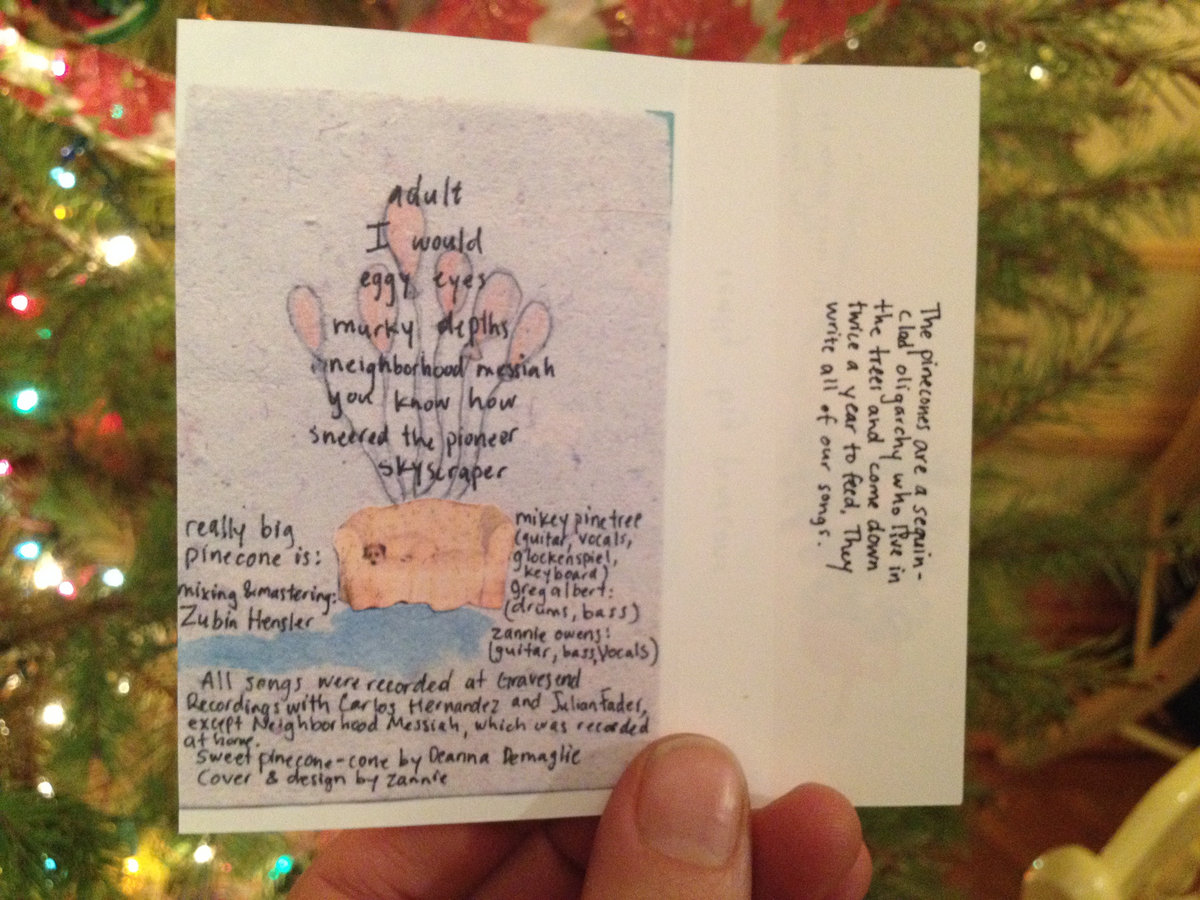 adult
I would
eggy eyes
murky depths
neighborhood messiah
you know how
sneered the pioneer
skyscraper
really big
pinecone is:
mixing & mastering:
Zubin Hensler
mikey pinetree
(guitar, vocals,
glockenspiel,
keyboard)
greg albert:
(drums, bass)
zannie owens:
(guitar, bass, vocals)
All songs were recorded at Gravesend
Recordings with Carlos Hernandez and Julian Fader,
except Neighborhood Messiah, which was recorded
at home.
Sweet pinecone-cone by Deanna Demaglie
Cover & design by zannie
The pinecones are a sequin-
clad oligarchy who live in
the trees and come down
twice a year to feed. They
write all of our songs.